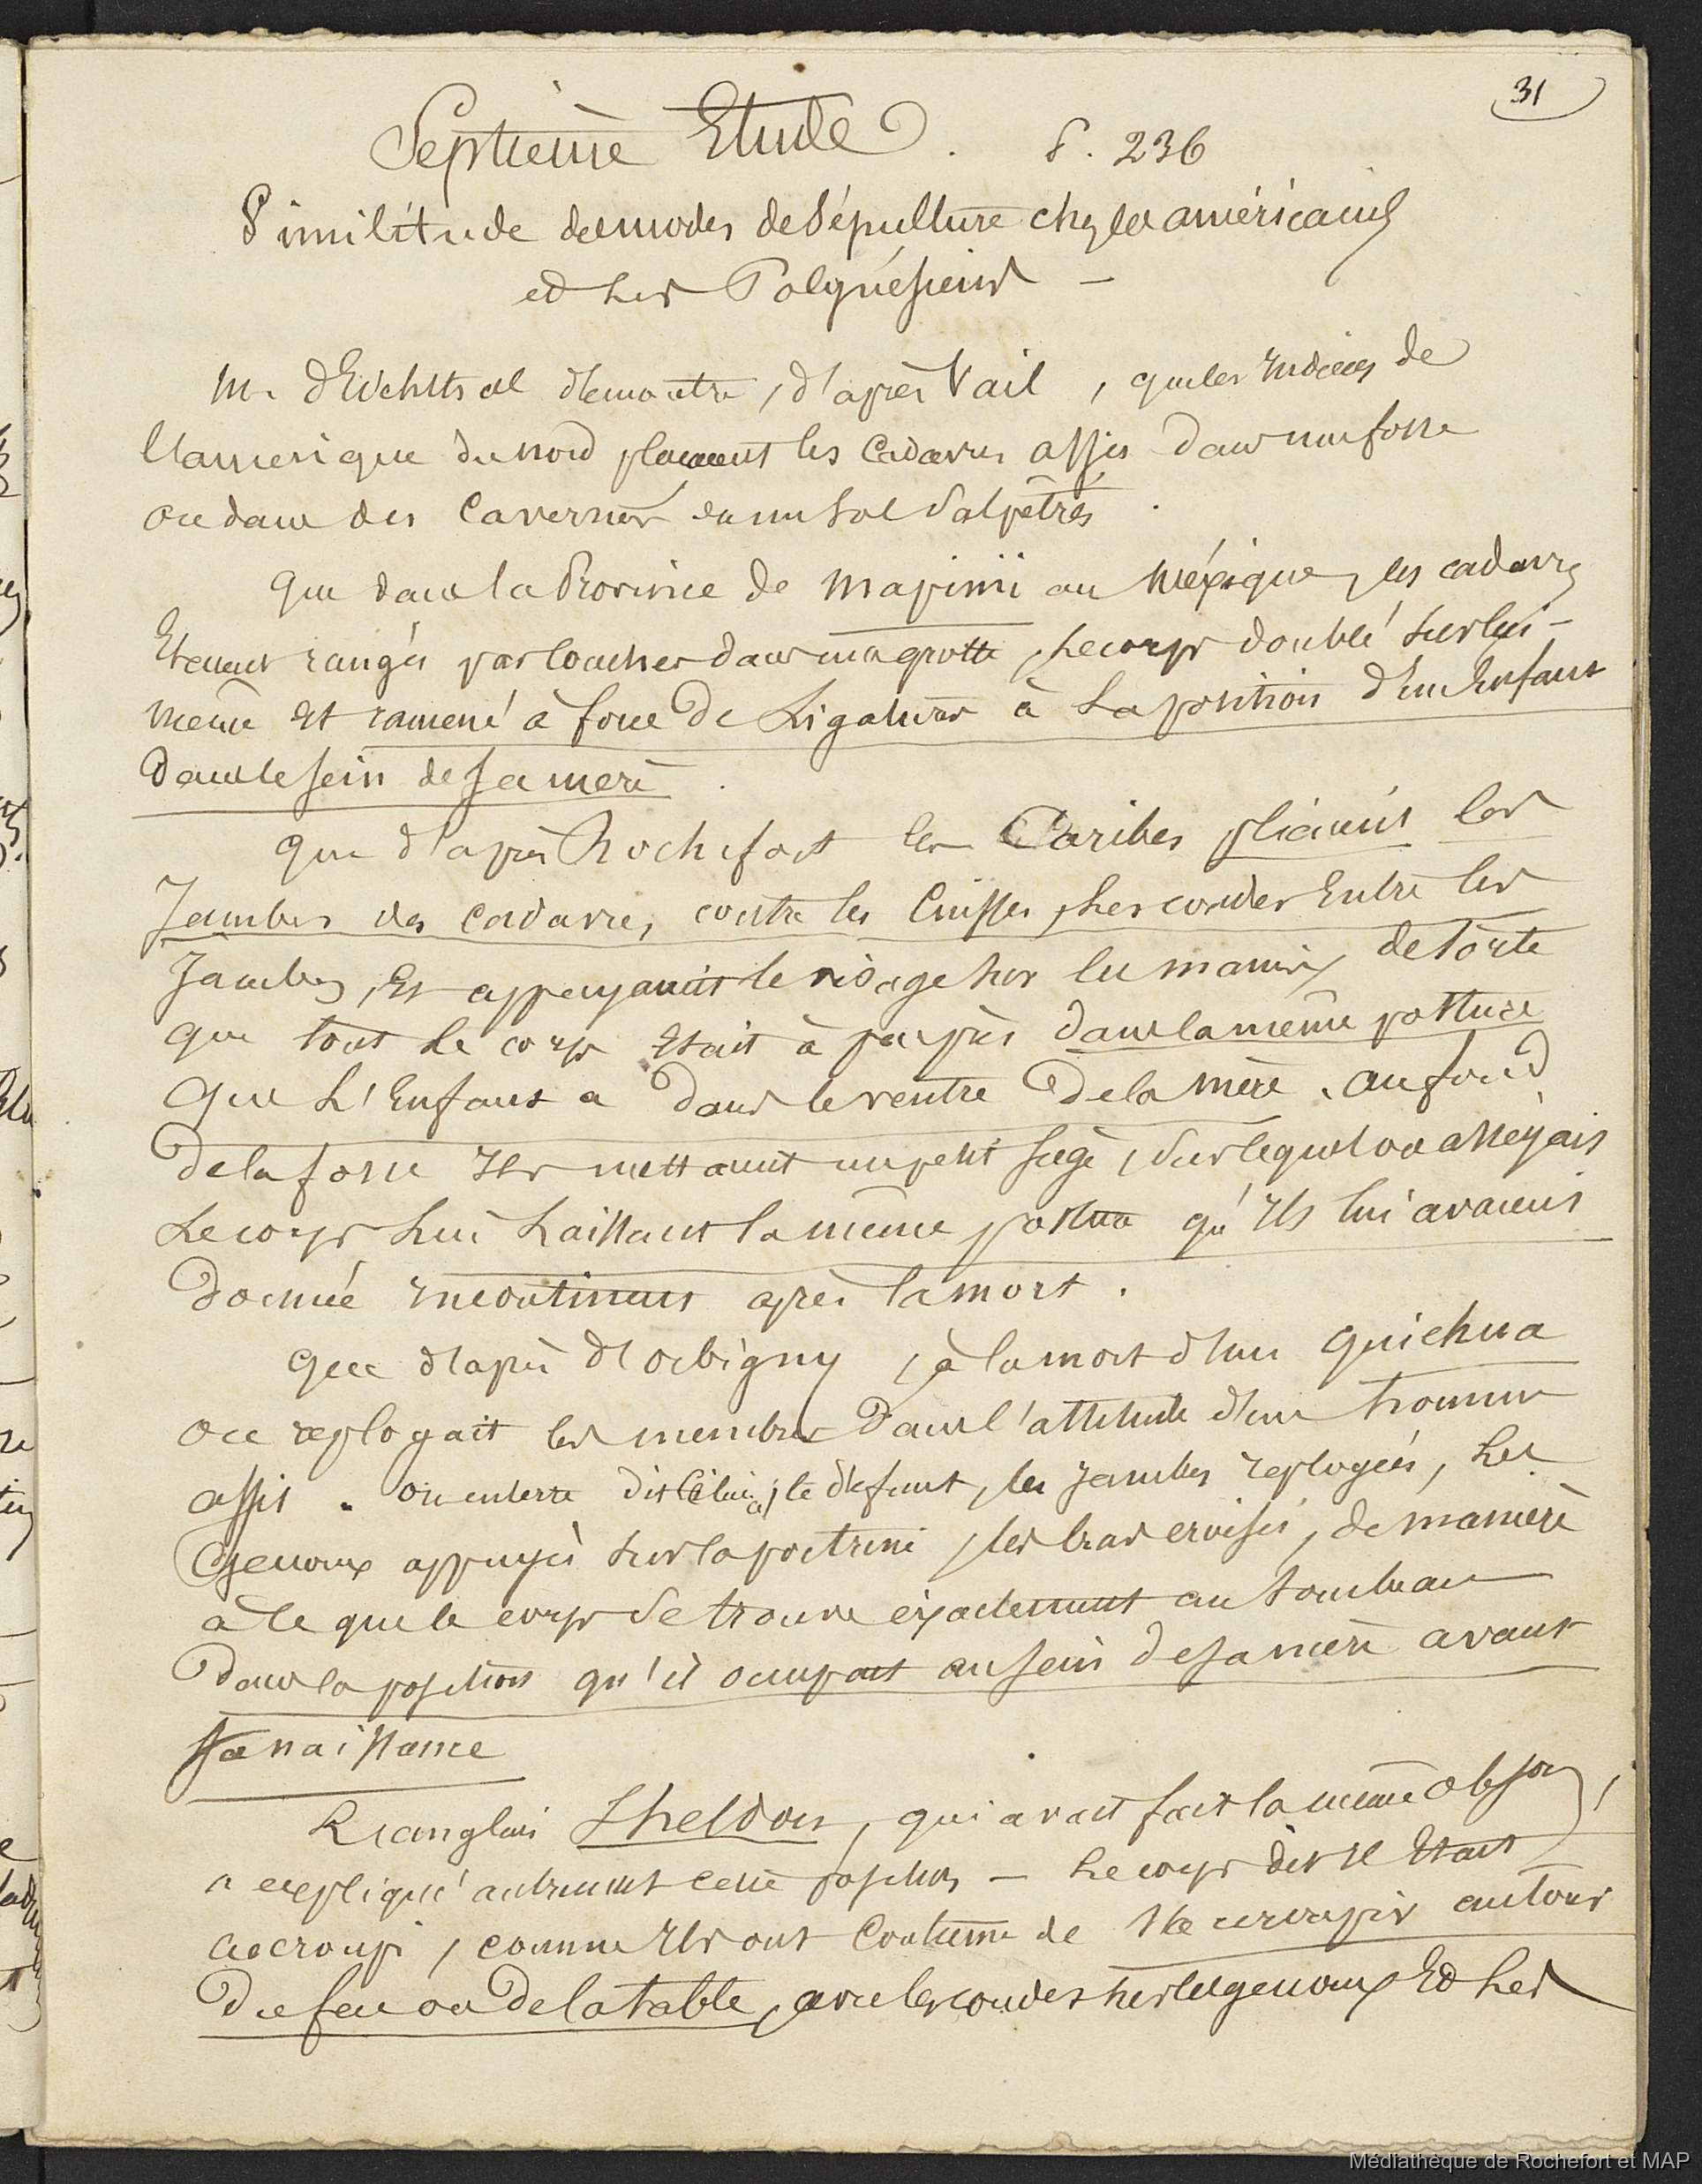 31
Septième Etude. P. 236
Similitude des modes de Sépulture chez les américains
et les Polynésiens —
M. d'Eichthal démontre, d'après Vail, que les Indiens de
l'amerique du nord plaçaient les Cadavres assis dans une fosse
ou dans des Cavernes au sol Salpêtrés.
que dans la Province de Mapimi au Méxique, les cadavres
Etaient rangés par couches dans une grotte, le corps doublé sur lui-
même et ramené à force de Ligatures à la position d'un Enfant
dans le sein de sa mere.
que d'après Rochefort les Caribes pliaient les
Jambes des cadavres, contre les Cuisses, les coudes Entre les
Jambes, Et appuyaient le visage sur les mains, de sorte
que tout le corps Etait à peu près dans la même posture
que L'Enfant a dans le ventre de la mère. au fond
de la fosse Ils mettaient un petit siège, sur lequel on asseyait
le corps lui Laissant la même posture qu'Ils lui avaient
donnée incontinent après la mort.
que d'après d'orbigny, à la mort d'un quichua
on reployait les membres dans l'attitude d'un homme
assis. on enterre dit celui-ci, le défunt, les jambes reployées, les
Genoux appuyés sur la poitrine, les bras croisés, de manière
à ce que le corps se trouve exactement au tombeau
dans la position qu'il occupait au sein de sa mère avant
sa naissance
L'anglais Sheldon, qui avait fait la même obson,
a expliqué autrement cette position — Le corps dit il Etait
accroupi, comme Ils ont Coutume de s'accroupir autour
du feu ou de la table, avec les coudes sur les genoux Et les
Médiathèque de Rochefort et MAP